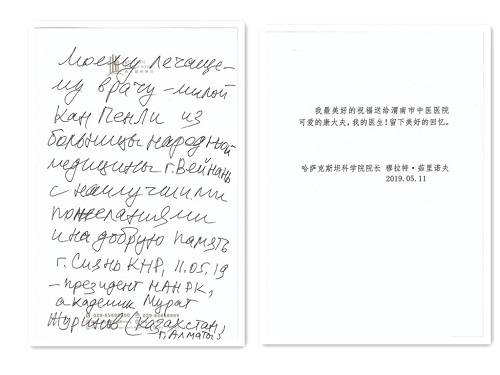 Моему лечаще-
му врачу - милой
Кан Пенли из
больницы народной
медицины г. Вейнань
с наилучшими
пожеланиями
и на добрую память
г. Сиянь КНР, 11.05.19
- президент НАН РК,
академик Мурат
Журинов (Казахстан,
г. Алматы)
我最美好的祝福送给渭南市中医医院
可爱的康大夫,我的医生!留下美好的回忆。
哈萨克斯坦科学院院长 穆拉特·茹里诺夫
2019.05.11